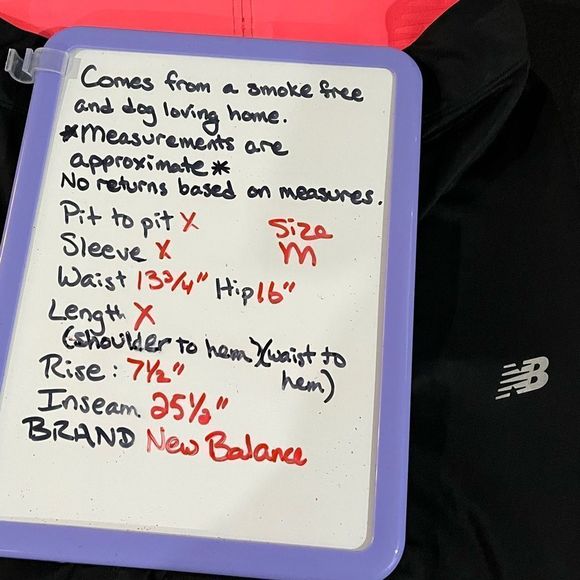 Comes from a smoke free
and dog loving home.
*Measurements are
approximate*
No returns based on measures.
Pit to pit X
Size
M
Sleeve X
Waist 13 3/4" Hip 16"
Length X
(shoulder to hem)(waist to
hem)
Rise: 7 1/2"
Inseam 25 1/2"
BRAND New Balance
NB